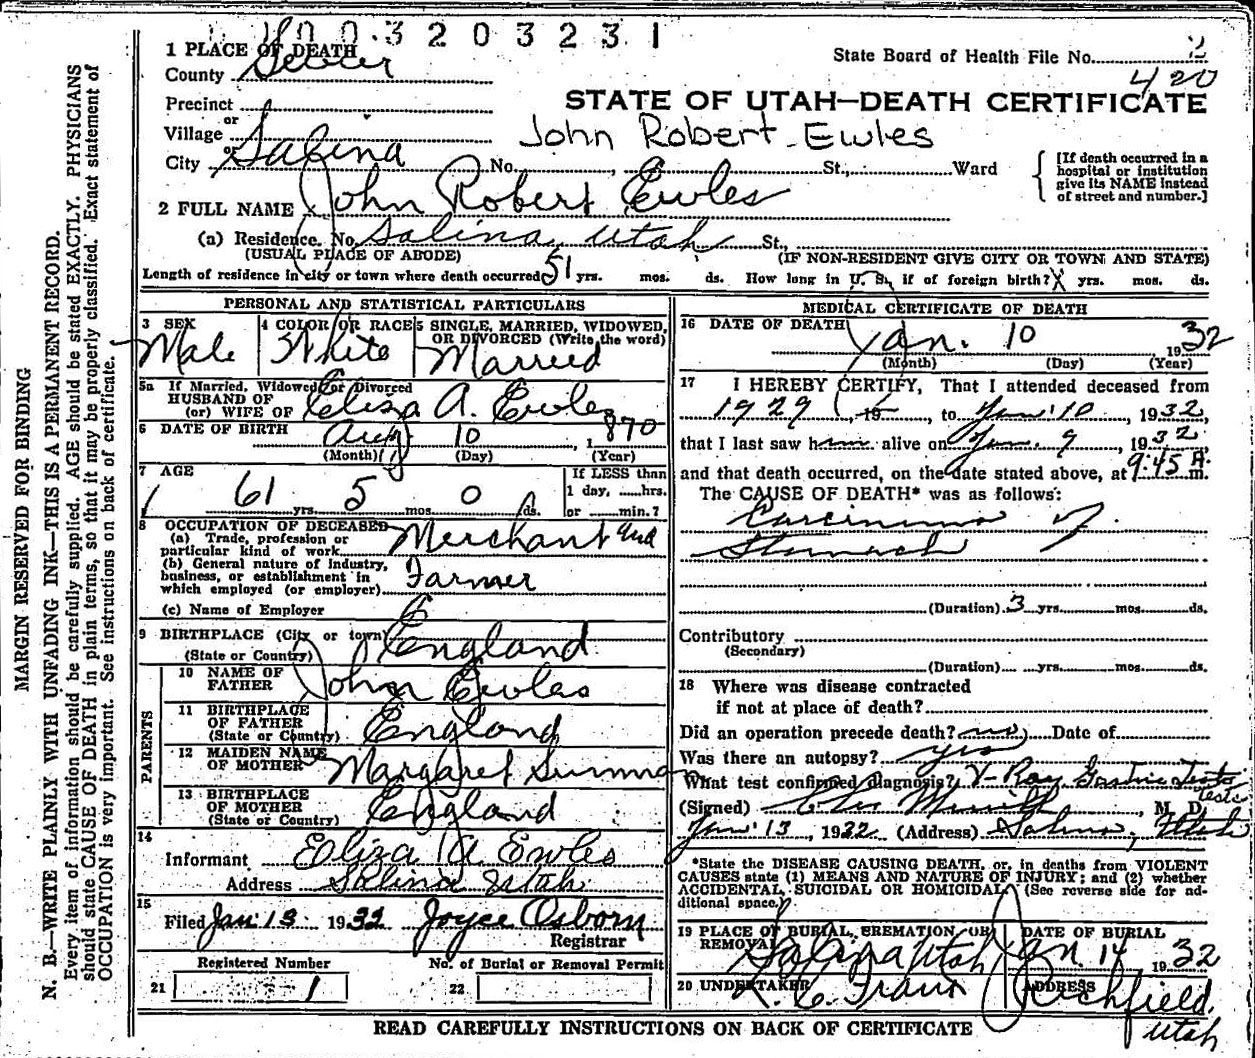 003203231
1 PLACE OF DEATH
County Sevier
State Board of Health File No. 2
420
Precinct
or
Village
or
City Salina No. St., Ward
STATE OF UTAH—DEATH CERTIFICATE
John Robert Ewles
[If death occurred in a hospital or institution give its NAME instead of street and number.]
2 FULL NAME John Robert Ewles
(a) Residence. No. Salina, Utah St.,
(USUAL PLACE OF ABODE) (IF NON-RESIDENT GIVE CITY OR TOWN AND STATE)
Length of residence in city or town where death occurred 51 yrs. mos. ds. How long in U. S., if of foreign birth? yrs. mos. ds.
PERSONAL AND STATISTICAL PARTICULARS
3 SEX Male
4 COLOR OR RACE White
5 SINGLE, MARRIED, WIDOWED, OR DIVORCED (Write the word) Married
5a If Married, Widowed or Divorced
HUSBAND OF
(or) WIFE OF Eliza A. Ewles
6 DATE OF BIRTH Aug 10, 1870
(Month) (Day) (Year)
7 AGE 61 yrs. 5 mos. 0 ds.
If LESS than
1 day, ......hrs.
or ......min.?
8 OCCUPATION OF DECEASED
(a) Trade, profession or
particular kind of work Merchant and
(b) General nature of Industry,
business, or establishment in
which employed (or employer) Farmer
(c) Name of Employer
9 BIRTHPLACE (City or town)
(State or Country) England
PARENTS
10 NAME OF
FATHER John Ewles
11 BIRTHPLACE
OF FATHER
(State or Country) England
12 MAIDEN NAME
OF MOTHER Margaret
13 BIRTHPLACE
OF MOTHER
(State or Country) England
14
Informant Eliza A Ewles
Address Salina Utah
15
Filed Jan 13 1932 Joyce Osborn
Registrar
Registered Number
21 1
No. of Burial or Removal Permit
22
MEDICAL CERTIFICATE OF DEATH
16 DATE OF DEATH Jan. 10 1932
(Month) (Day) (Year)
17 I HEREBY CERTIFY, That I attended deceased from
1929, 19 , to Jan 10, 1932,
that I last saw him alive on Jan. 9, 1932,
and that death occurred, on the date stated above, at 9:45 A. m.
The CAUSE OF DEATH* was as follows:
Carcinoma of
Stomach
(Duration) 3 yrs. mos. ds.
Contributory
(Secondary)
(Duration) yrs. mos. ds.
18 Where was disease contracted
if not at place of death?
Did an operation precede death? no Date of
Was there an autopsy? yes
What test confirmed diagnosis? X-Ray Gastric Tests
tests
(Signed) M. D.
Jan 13, 1932 (Address) Salina, Utah
*State the DISEASE CAUSING DEATH, or, in deaths from VIOLENT
CAUSES state (1) MEANS AND NATURE OF INJURY; and (2) whether
ACCIDENTAL, SUICIDAL OR HOMICIDAL. (See reverse side for ad-
ditional space.)
19 PLACE OF BURIAL, CREMATION, OR
REMOVAL Salina Utah
DATE OF BURIAL
Jan. 14 1932
20 UNDERTAKER
ADDRESS
Richfield,
Utah
READ CAREFULLY INSTRUCTIONS ON BACK OF CERTIFICATE
MARGIN RESERVED FOR BINDING
N. B.—WRITE PLAINLY WITH UNFADING INK—THIS IS A PERMANENT RECORD.
Every item of information should be carefully supplied. AGE should be stated EXACTLY. PHYSICIANS
should state CAUSE OF DEATH in plain terms, so that it may be properly classified. Exact statement of
OCCUPATION is very important. See instructions on back of certificate.